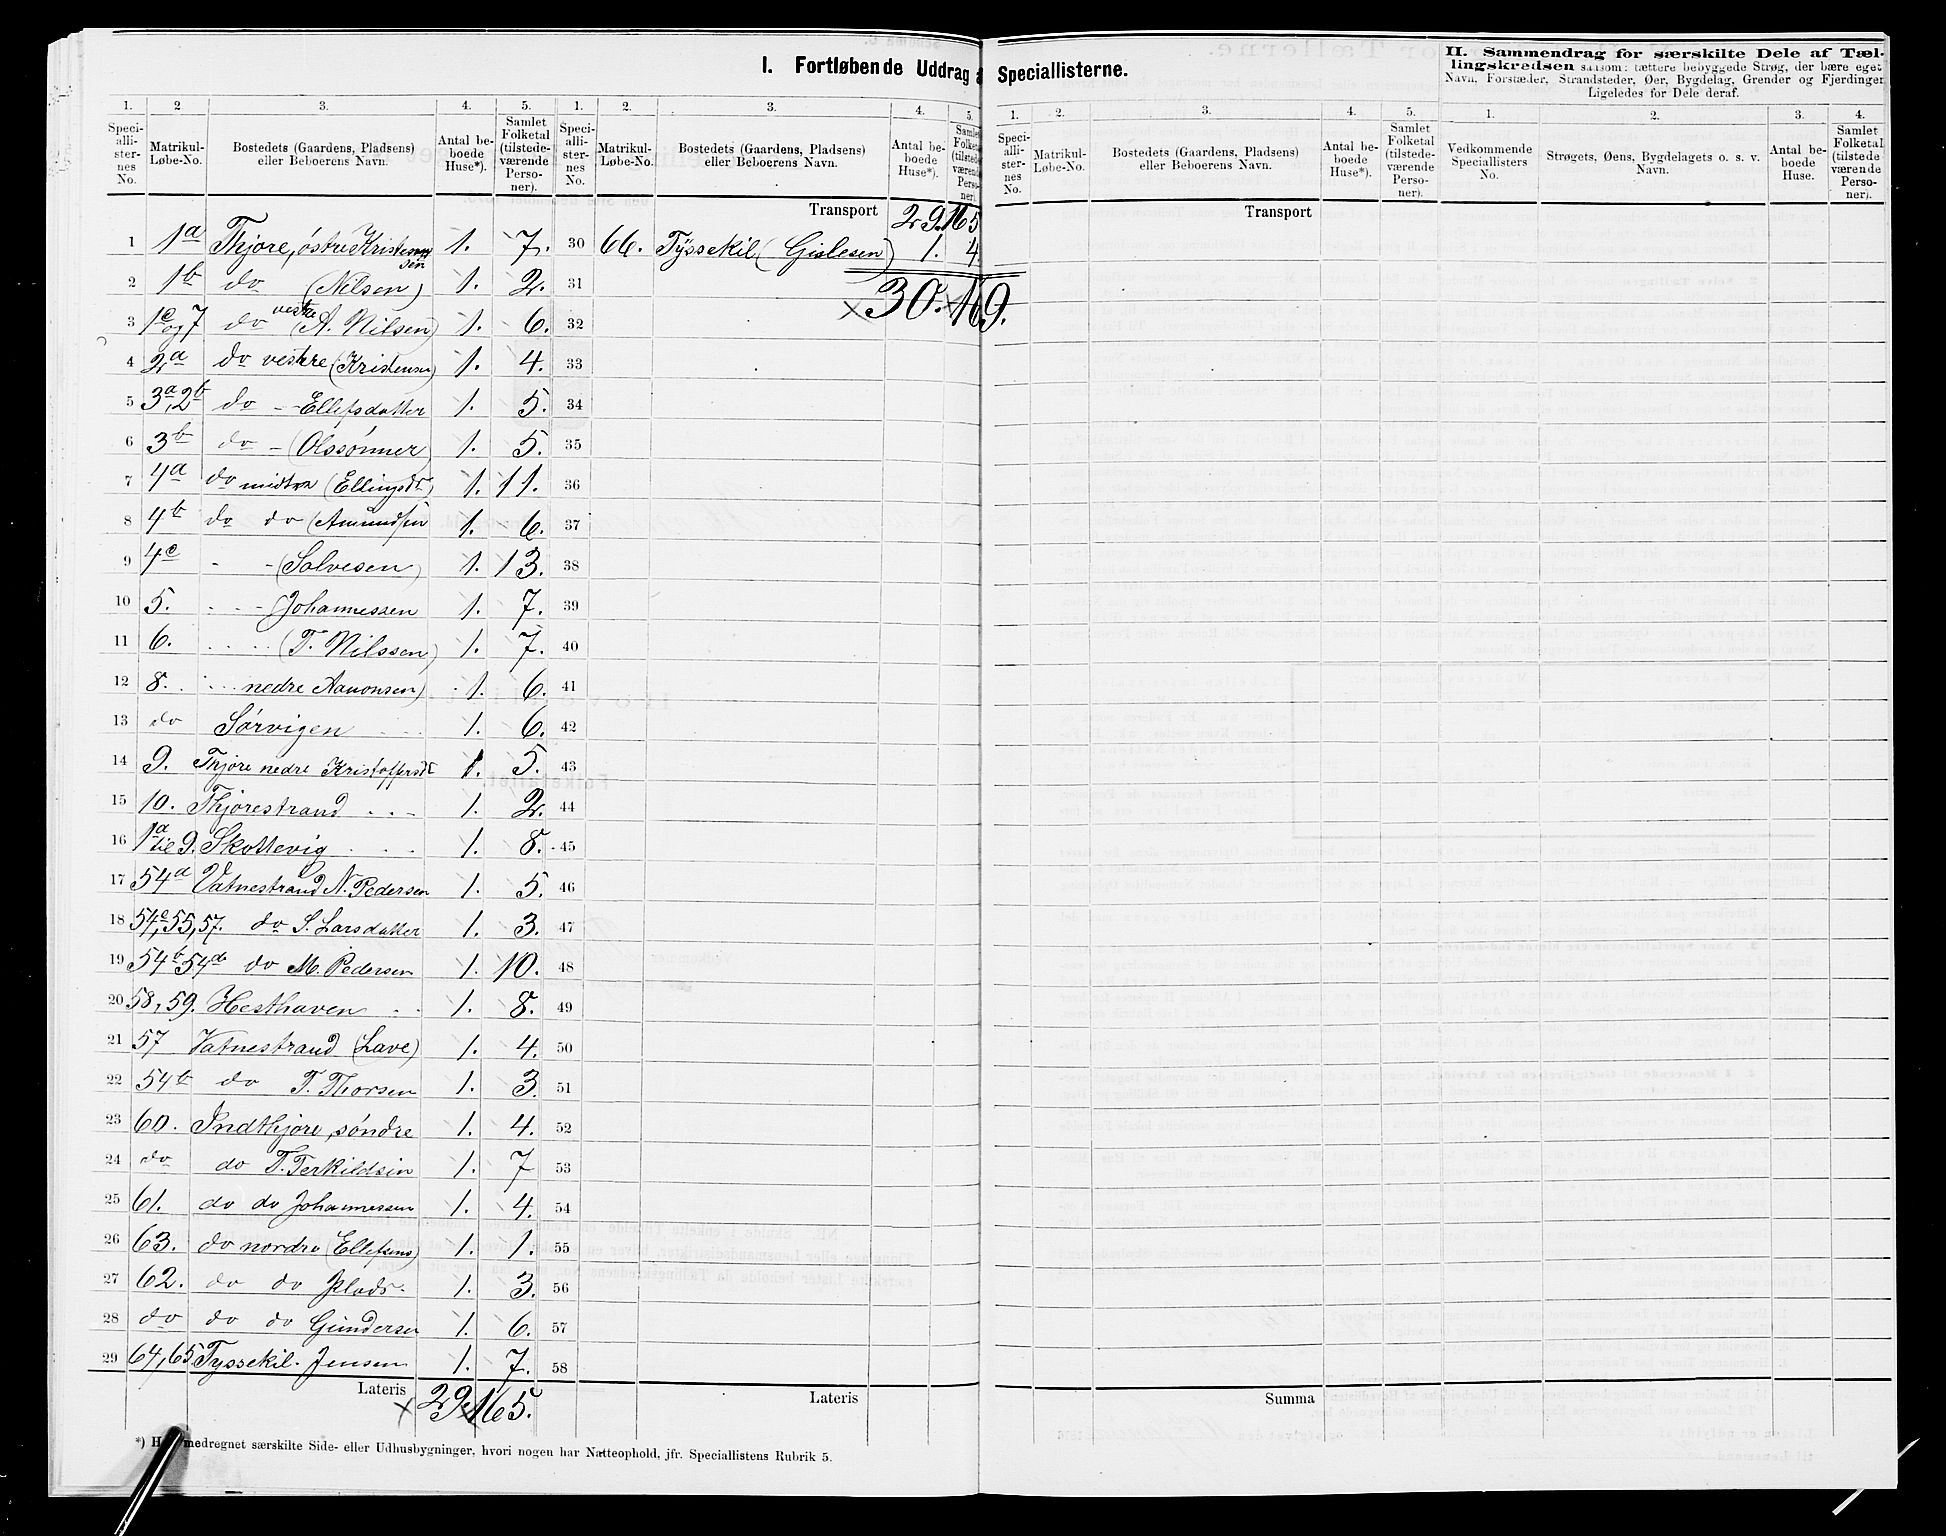 I. Fortløbende Uddrag a
1. 2. 3. 4. 5. 1. 2. 3. 4. 5.
Speciallisternes No. Matrikul-Løbe-No. Bostedets (Gaardens, Pladsens) eller Beboerens Navn. Antal beboede Huse*). Samlet Folketal (tilstedeværende Personer). Speciallisternes No. Matrikul-Løbe-No. Bostedets (Gaardens, Pladsens) eller Beboerens Navn. Antal beboede Huse*). Samlet Folketal (tilstedeværende Personer).
Transport 29. 165
1 1a Thjore, østre Kristensen 1. 7. 30 66. Tyssekil (Gislesen) 1. 4
2 1b do (Nelsen) 1. 2. 31
× 30. × 169.
3 1c og 7 do vestre (A. Nilsen) 1. 6. 32
4 2a do vestre (Kristensen) 1. 4. 33
5 3a, 2b do - - Ellefsdatter 1. 5. 34
6 3b do - (Olssønner) 1. 5. 35
7 4a do midtre (Ellingsdt) 1. 11. 36
8 4b do do (Amundsen 1. 6. 37
9 4c - - (Salvesen) 1. 13. 38
10 5. - - - (Johannessen 1. 7. 39
11 6. . . . . (T. Nilssen) 1. 7. 40
12 8. . . . nedre Aanonsen) 1. 6. 41
13 do Sørvigen 1. 6. 42
14 9. Thjore nedre Kristoffersdt 1. 5. 43
15 10. Thjorestrand . . - 1. 2. 44
16 1a til 9. Skottevig . . . 1. 8. 45
17 54a Vatnestrand N. Pedersen 1. 5. 46
18 54c, 55, 57. do S. Larsdatter 1. 3. 47
19 54b 54d do M. Pedersen 1. 10. 48
20 58, 59. Hesthaven . . 1. 8. 49
21 57 Vatnestrand (Lave) 1. 4. 50
22 54b do T. Thorsen 1. 3. 51
23 60. Indthjore, søndre 1. 4. 52
24 do do T. Terkildsen 1. 7 53
25 61. do do Johannessen 1. 4. 54
26 63. do nordre (Ellefsens) 1. 1. 55
27 62. do do Plads. 1. 3. 56
28 do do do Gundersen 1. 6. 57
29 64, 65 Tyssekil. Jensen 1. 7. 58
Lateris × 29. × 165. Lateris
medregnet særskilte Side- eller Udhusbygninger, hvori nogen har Natteophold, jfr. Speciallistens Rubrik 5.
Speciallisterne.
1. 2. 3. 4. 5.
Speciallisternes No. Matrikul-Løbe-No. Bostedets (Gaardens, Pladsens) eller Beboerens Navn. Antal beboede Huse*). Samlet Folketal (tilstedeværende Personer).
Transport
Summa
II. Sammendrag for særskilte Dele af Tællingskredsen saasom: tættere bebyggede Strøg, der bære eget
Navn, Forstæder, Strandsteder, Øer, Bygdelag, Grender og Fjerdinger
Ligeledes for Dele deraf.
1. 2. 3. 4.
Vedkommende Speciallisters No. Strøgets, Øens, Bygdelagets o. s. v. Navn. Antal beboede Huse. Samlet Folketal (tilstedeværende Personer).